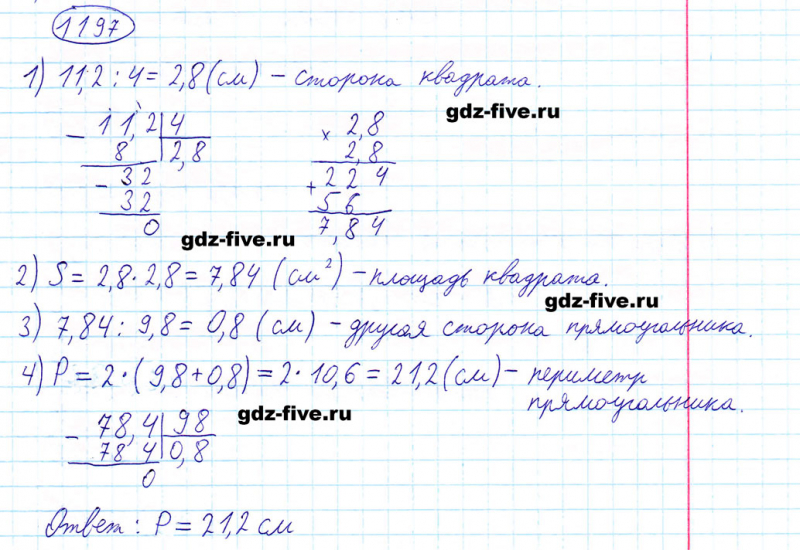 1197
1) 11,2 : 4 = 2,8 (см) – сторона квадрата.
gdz-five.ru
– 11,2 | 4
8 | 2,8
– 32
32
0
× 2,8
2,8
+ 224
56
7,84
gdz-five.ru
2) S = 2,8 · 2,8 = 7,84 (см²) – площадь квадрата.
gdz-five.ru
3) 7,84 : 9,8 = 0,8 (см) – другая сторона прямоугольника.
4) P = 2 · (9,8 + 0,8) = 2 · 10,6 = 21,2 (см) – периметр
прямоугольника.
gdz-five.ru
– 78,4 | 98
78 4 | 0,8
0
Ответ : P = 21,2 см